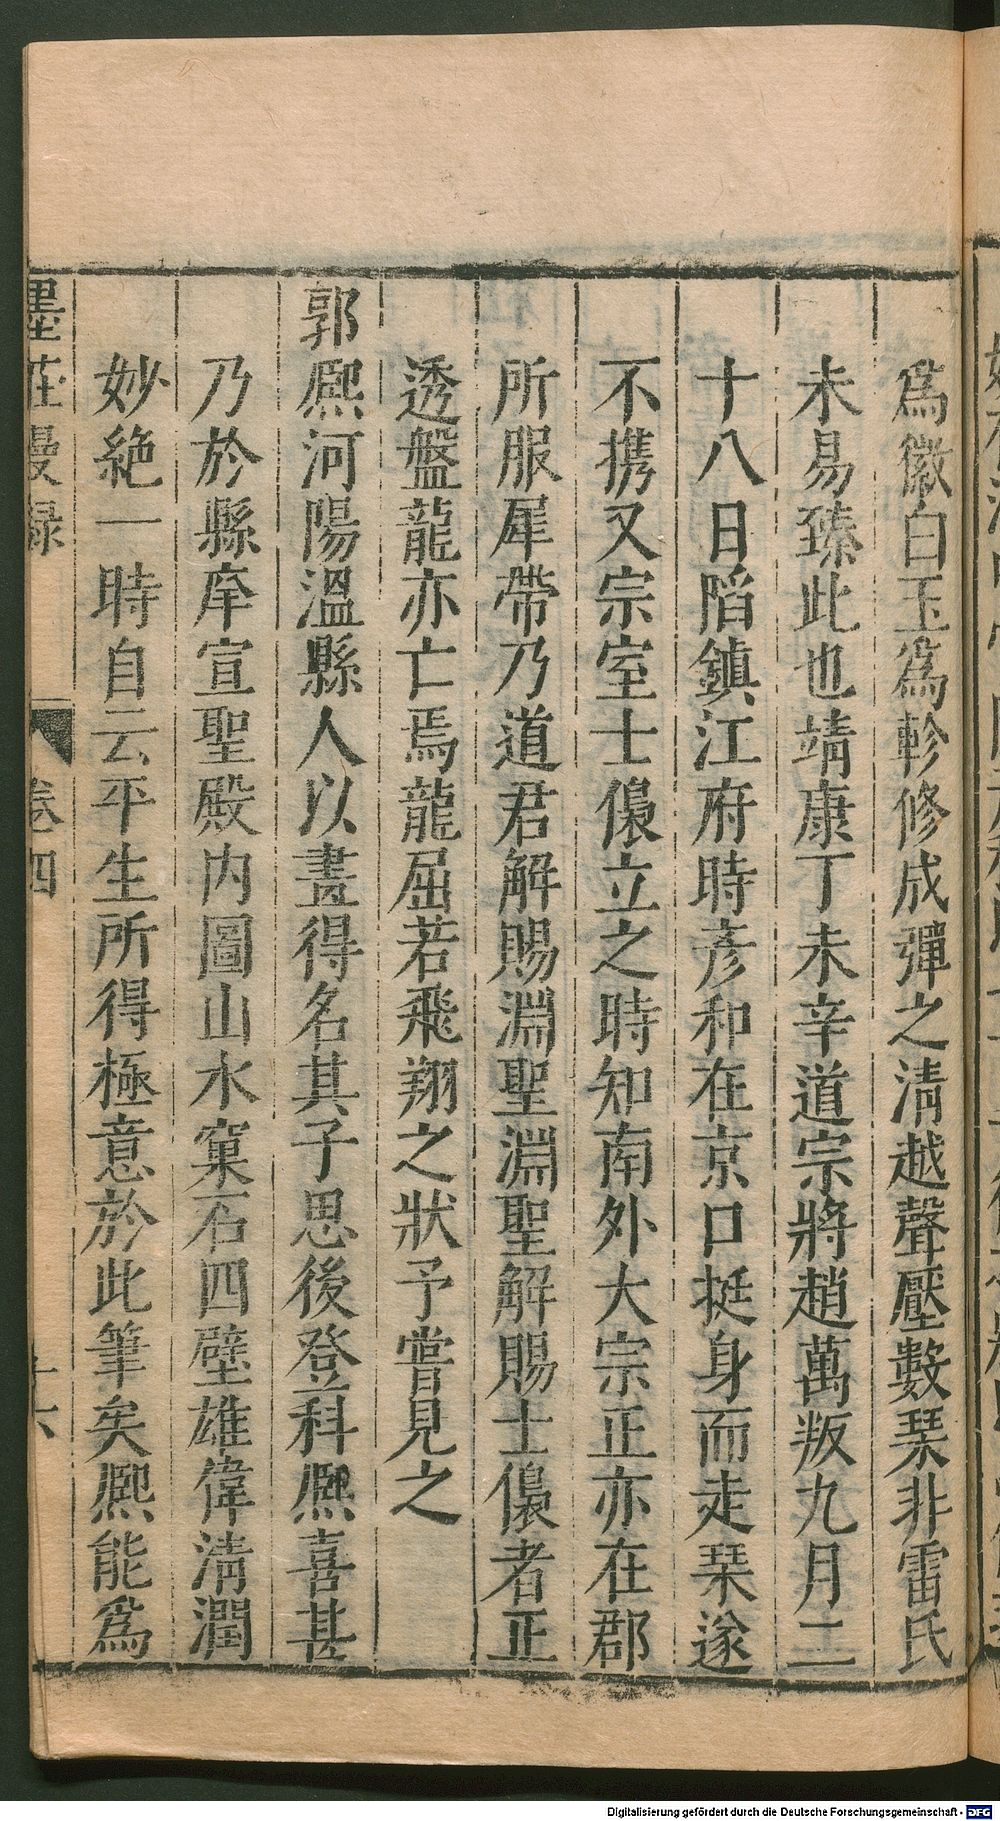 爲徽白玉爲軫修成彈之淸越聲壓數琹非雷氏
未易臻此也靖康丁未辛道宗將趙萬叛九月二
十八日䧟鎮江府時彦和在京口挺身而走琹遂
不携又宗室士㒟立之時知南外大宗正亦在郡
所服犀帶乃道君解賜淵聖淵聖解賜士㒟者正
透盤龍亦亡焉龍屈若飛翔之狀予嘗見之
郭熈河陽溫縣人以畫得名其子思後登科熈喜甚
乃於縣庠宣聖殿内圖山水窠石四壁雄偉淸潤
妙絶一時自云平生所得極意於此筆矣熈能爲
墨莊漫録 卷四 十六
Digitalisierung gefördert durch die Deutsche Forschungsgemeinschaft - DFG